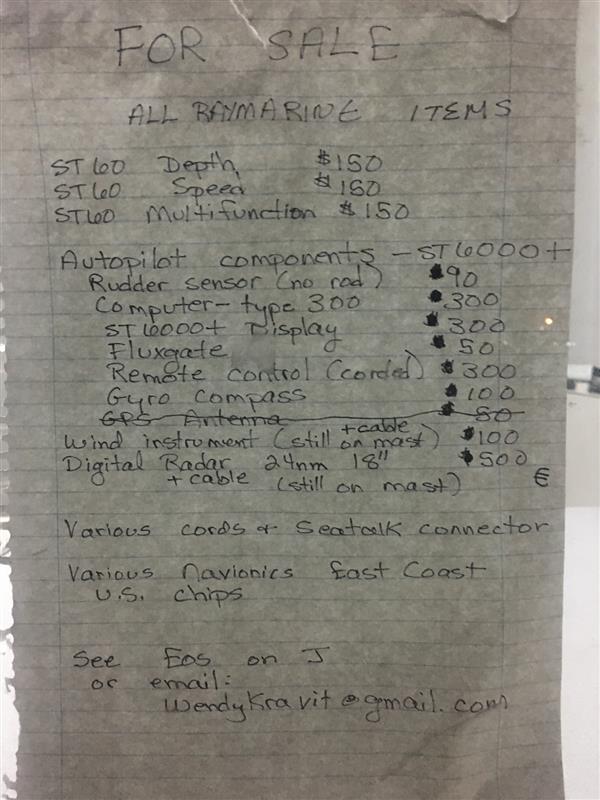 FOR SALE
ALL RAYMARINE ITEMS
ST60 Depth $150
ST60 Speed $150
ST60 Multifunction $150
Autopilot components - ST6000+
Rudder sensor (no rod) $90
Computer - type 300 $300
ST6000+ Display $300
Fluxgate $50
Remote control (corded) $300
Gyro Compass $100
GPS Antenna $80
Wind instrument (still on mast) + cable $100
Digital Radar 24nm 18" $500
+ cable (still on mast) €
Various cords & Seatalk connector
Various Navionics East Coast
U.S. chips
See Eos on J
or email:
wendykravit@gmail.com